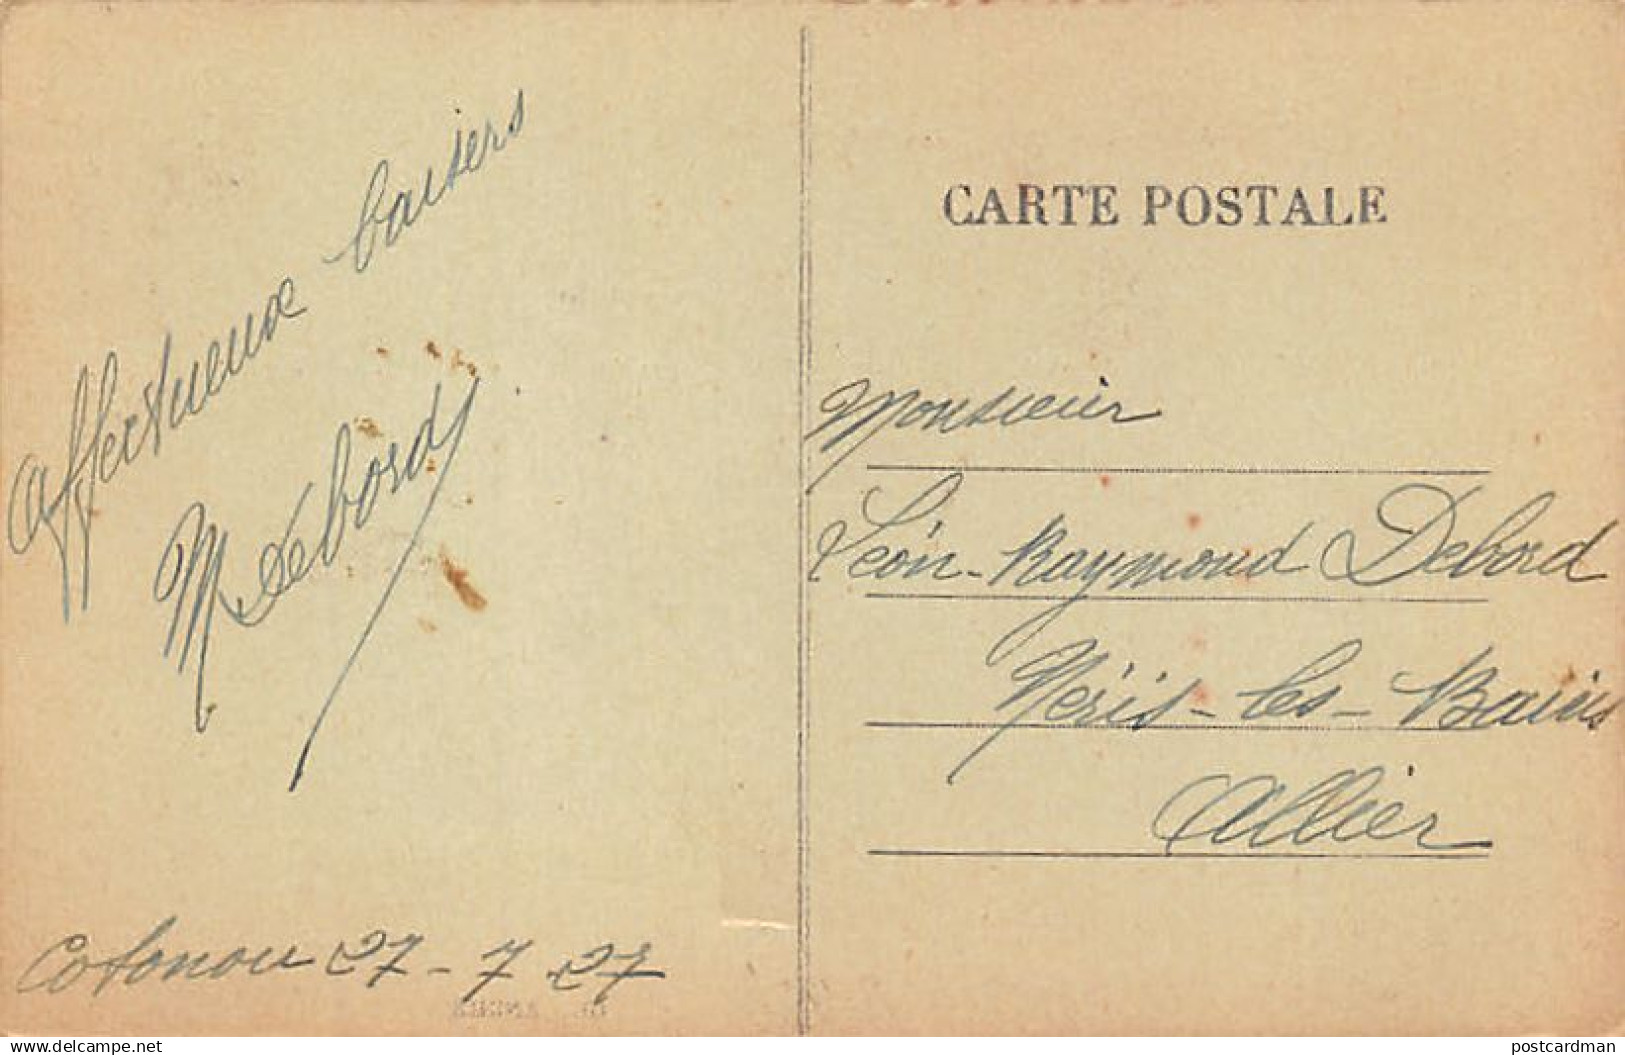 Affectueux baisers
M Debord
Cotonou 27-7 27
CARTE POSTALE
Monsieur
Léon-Raymond Debord
Néris-les-Bains
Allier
www.delcampe.net
postcardman